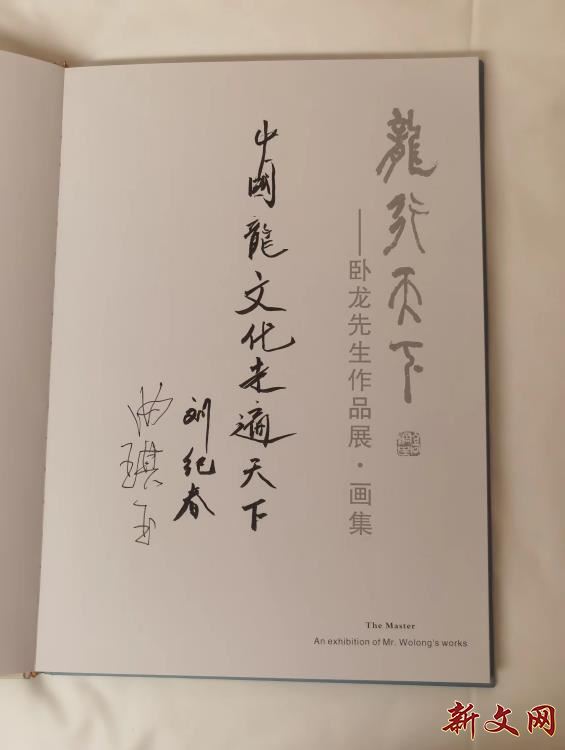 龍行天下
——卧龙先生作品展·画集
中國龍文化走遍天下
刘纪春
The Master
An exhibition of Mr. Wolong's works
新文网